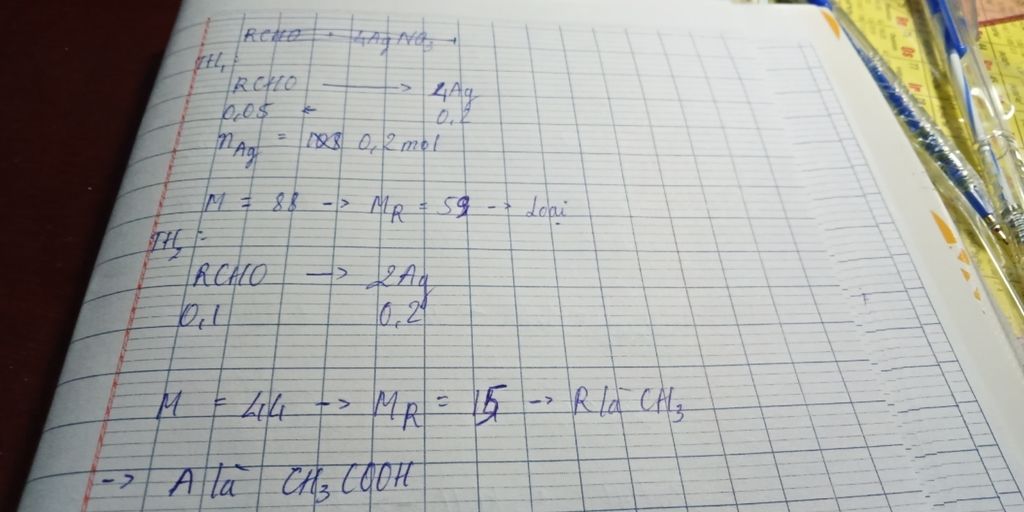 RCHO + 4AgNO3 →
TH1:
RCHO → 4Ag
0,05 ← 0,2
nAg = 0,2 mol
M = 88 → MR = 59 → Loại
TH2:
RCHO → 2Ag
0,1 0,2
M = 44 → MR = 15 → R là CH3
→ A là CH3COOH